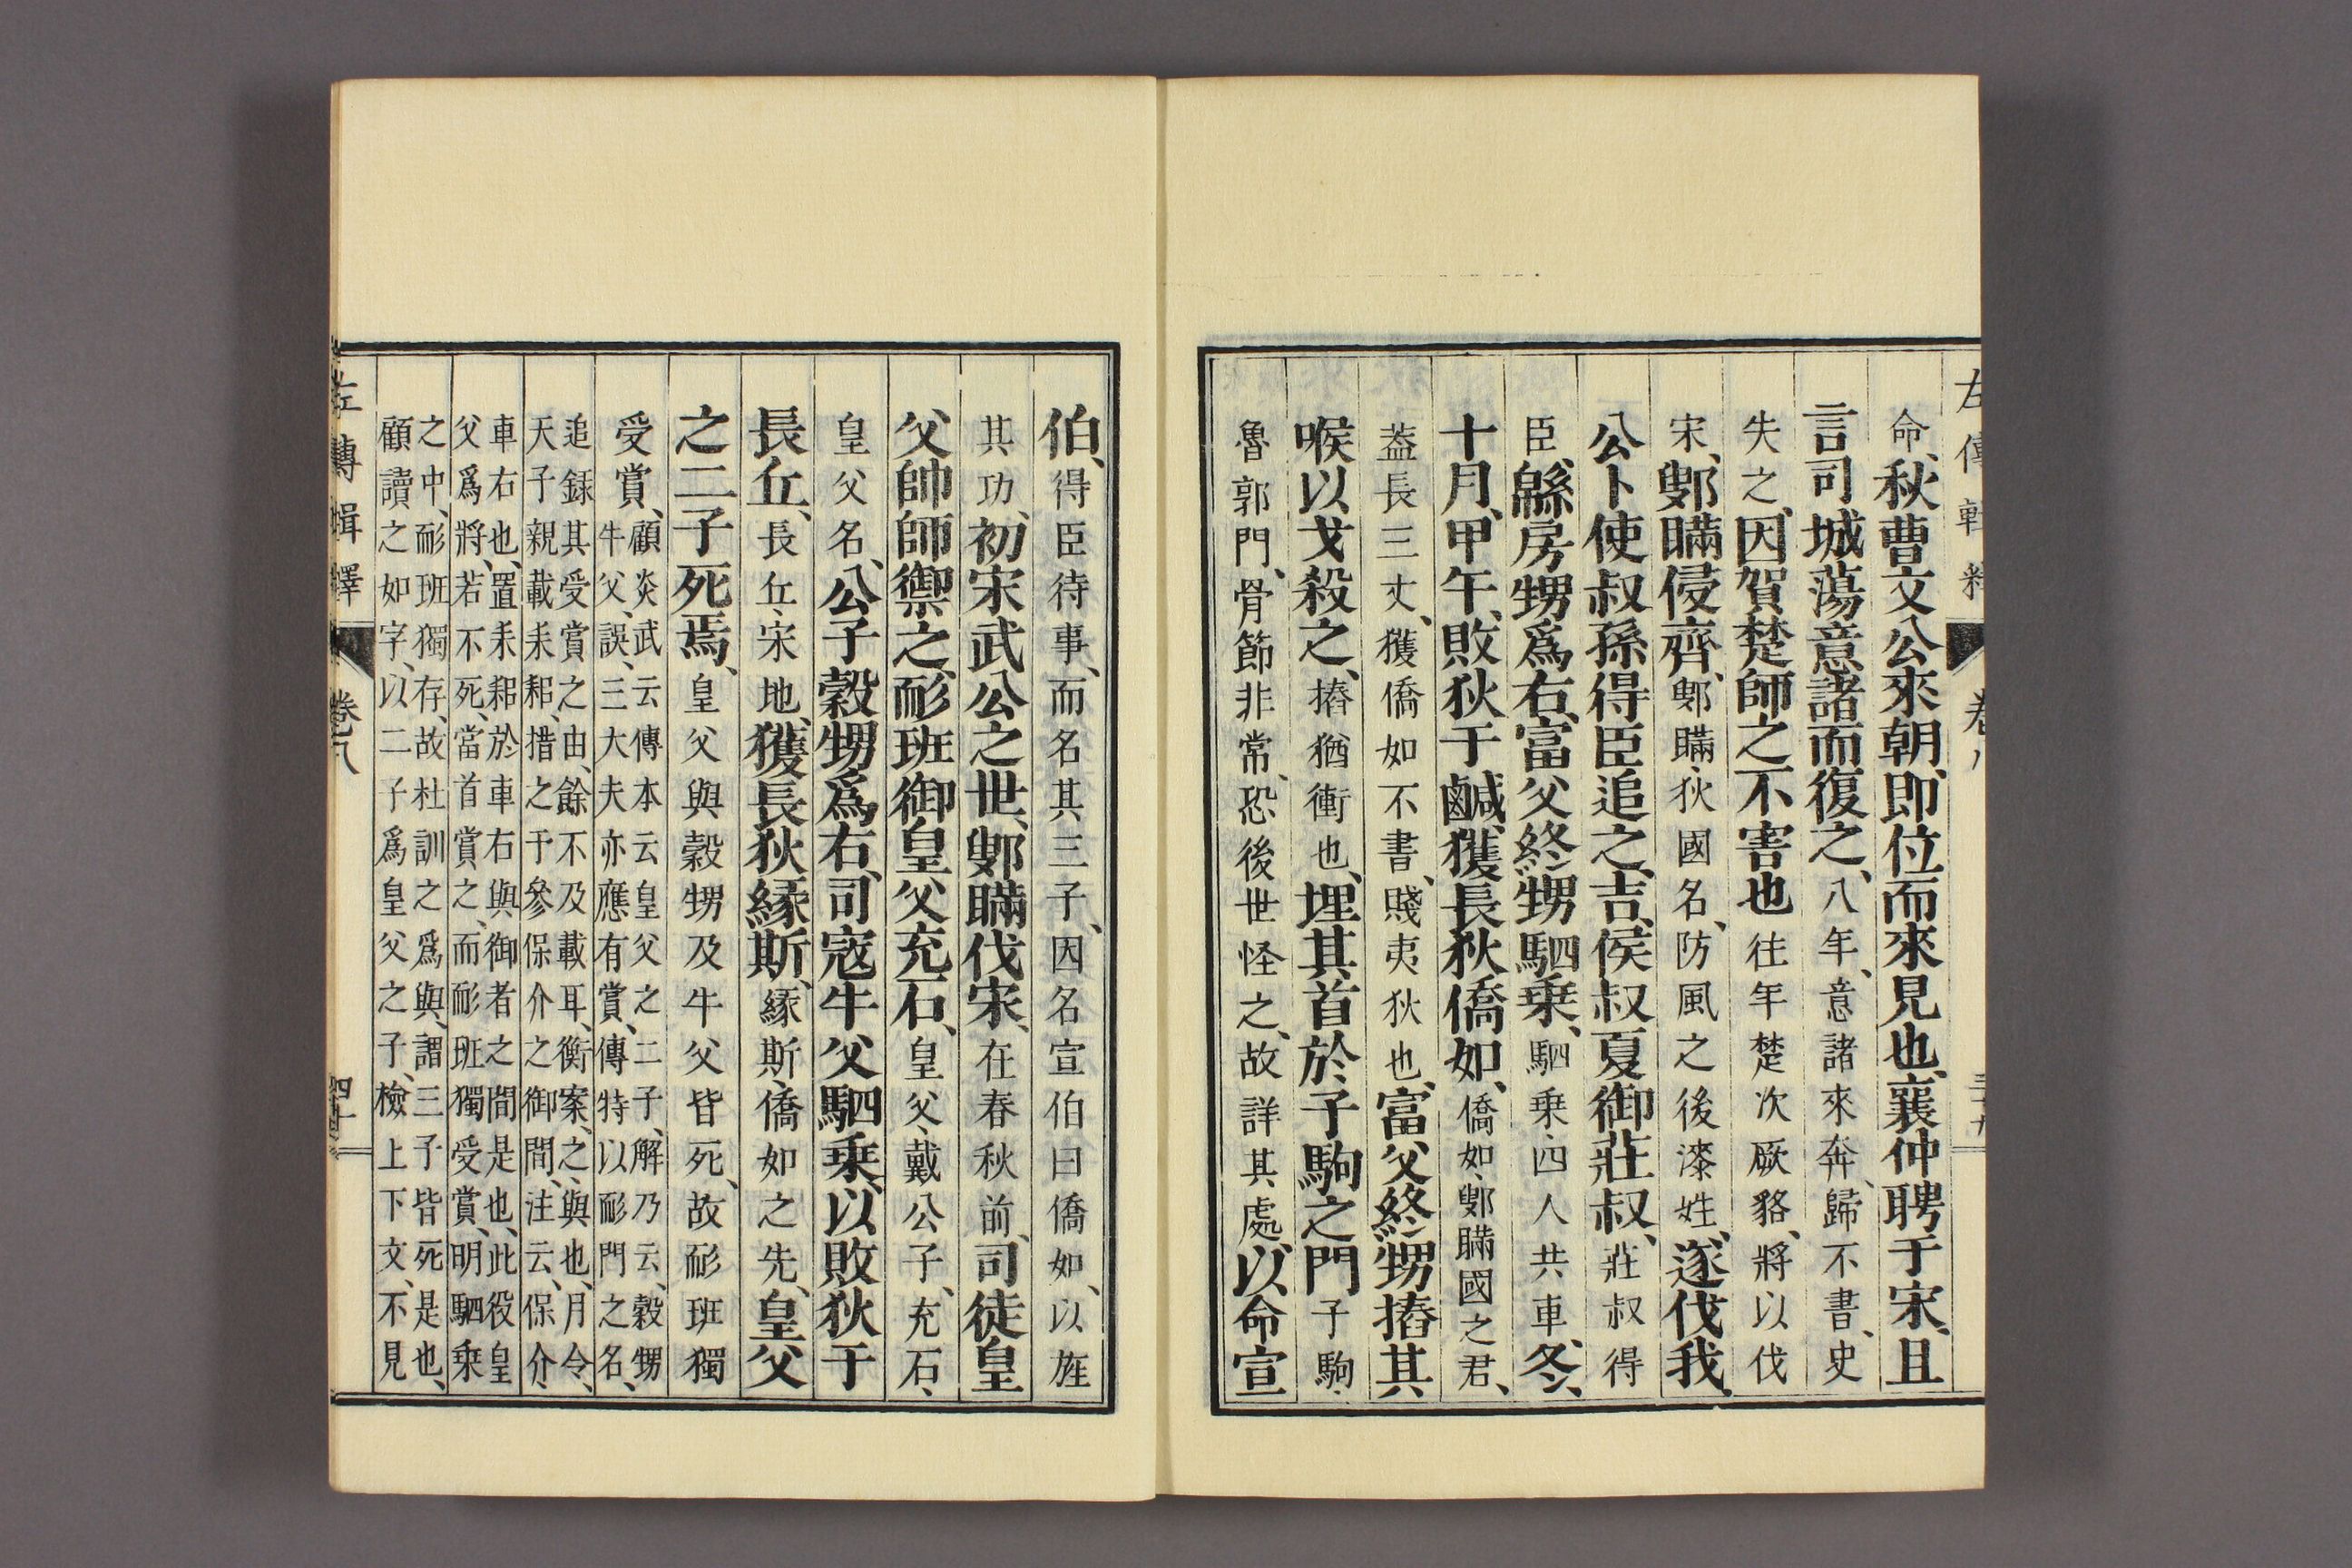 命、秋曹文公來朝、即位而來見也、襄仲聘于宋、且
言司城蕩意諸而復之、八年、意諸來奔、歸不書、史
失之、因賀楚師之不害也往年楚次厥貉、將以伐
宋、鄋瞞侵齊、鄋瞞、狄國名、防風之後漆姓、遂伐我、
公卜使叔孫得臣追之、吉、侯叔夏御莊叔、莊叔得
臣、緜房甥爲右、富父終甥駟乗、駟乗、四人共車、冬、
十月、甲午、敗狄于鹹、獲長狄僑如、僑如、鄋瞞國之君、
葢長三丈、獲僑如不書、賤夷狄也、富父終甥摏其
喉以戈殺之、摏猶衝也、埋其首於子駒之門子駒、
魯郭門、骨節非常、恐後世怪之、故詳其處、以命宣
左傳輯釋 卷八
伯、得臣待事、而名其三子、因名宣伯曰僑如、以旌
其功、初宋武公之世、鄋瞞伐宋、在春秋前、司徒皇
父帥師禦之、耏班御皇父充石、皇父、戴公子、充石、
皇父名、公子穀甥爲右、司寇牛父駟乗、以敗狄于
長丘、長丘、宋地、獲長狄緣斯、緣斯、僑如之先、皇父
之二子死焉、皇父與穀甥及牛父皆死、故耏班獨
受賞、顧炎武云傳本云皇父之二子、解乃云、穀甥
牛父、誤、三大夫亦應有賞、傳特以耏門之名、
追錄其受賞之由、餘不及載耳、衡案、之、與也、月令、
天子親載耒耜、措之于參保介之御間、注云、保介、
車右也、置耒耜於車右與御者之間是也、此役皇
父爲將、若不死、當首賞之、而耏班獨受賞、明駟乗
之中、耏班獨存、故杜訓之爲與、謂三子皆死是也、
顧讀之如字、以二子爲皇父之子、檢上下文、不見
左傳輯釋 卷八 四十